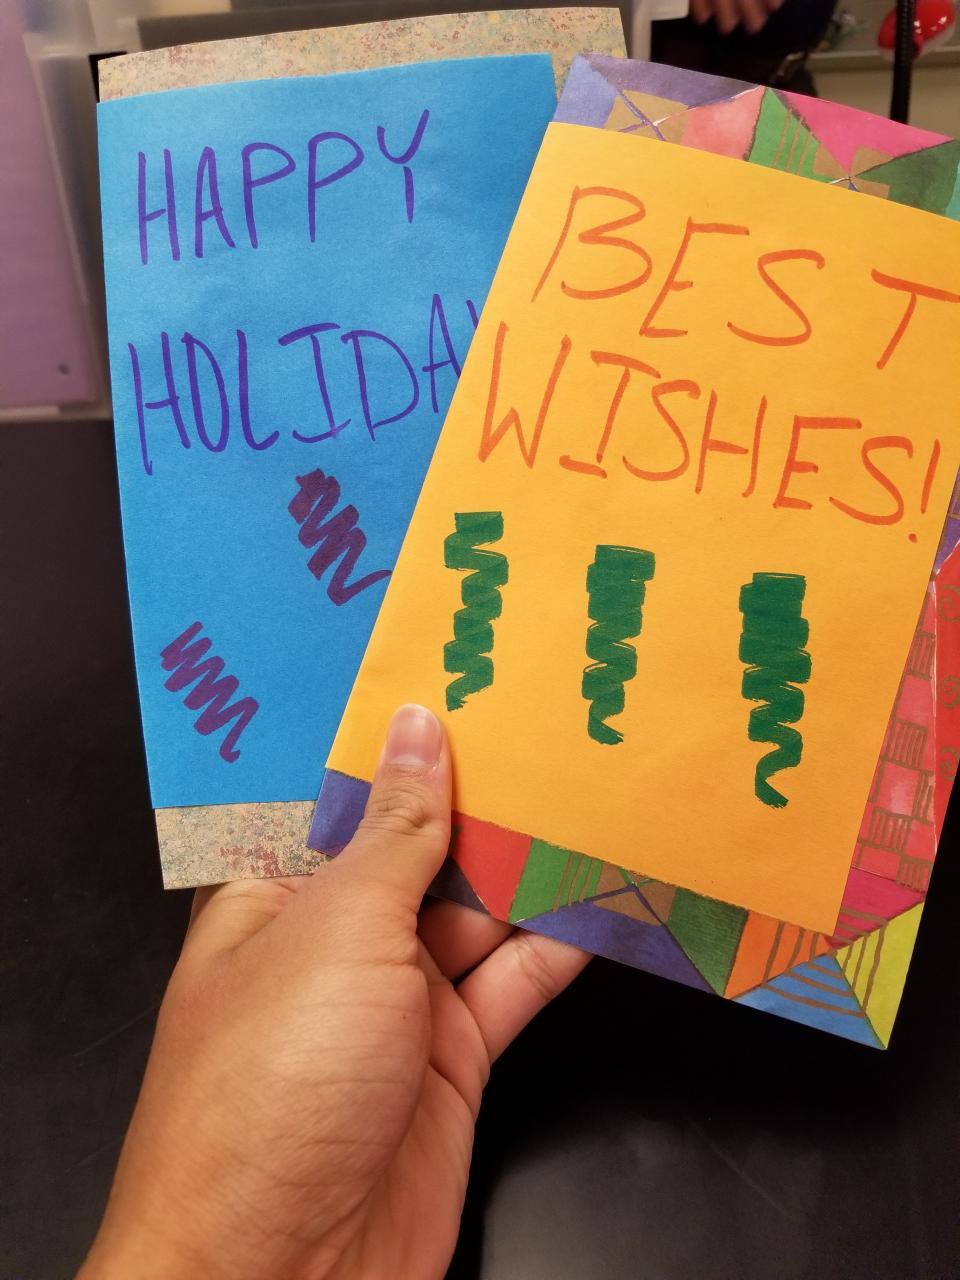 HAPPY
HOLIDA
BEST
WISHES!